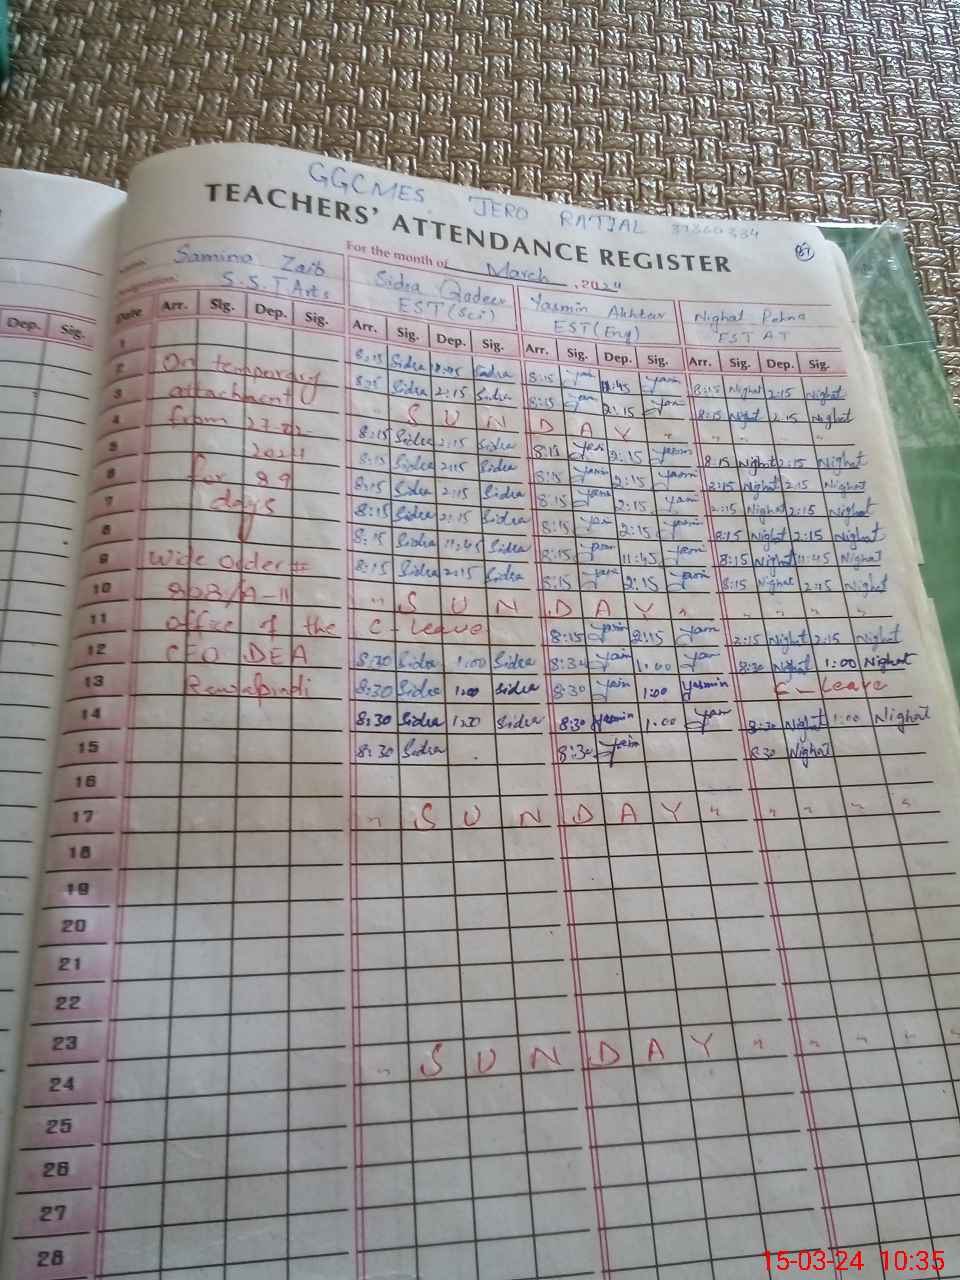 GGCMES JERO RATJAL 37360334
TEACHERS' ATTENDANCE REGISTER
87
For the month of March, 2024
Name: Samina Zaib Sidra Qadeer Yasmin Akhtar Nighat
Designation: S.S.T Arts EST (Sci) EST (Eng) EST AT
Dep. Sig. Date Arr. Sig. Dep. Sig. Arr. Sig. Dep. Sig. Arr. Sig. Dep. Sig. Arr. Sig. Dep. Sig.
1 8:15 Sidra Sidra 8:15 11:45 8:15 Nighat 2:15 Nighat
2 On temporary 8:15 Sidra 2:15 Sidra 8:15 2:15 8:15 Nighat 2:15 Nighat
3 attachment " S U N D A Y " " " " "
4 from 27-02- 8:15 Sidra 2:15 Sidra 8:15 2:15 8:15 Nighat 2:15 Nighat
5 2024 8:15 Sidra 2:15 Sidra 8:15 2:15 8:15 Nighat 2:15 Nighat
6 for 89 8:15 Sidra 2:15 Sidra 8:15 2:15 2:15 Nighat 2:15 Nighat
7 days 8:15 Sidra 2:15 Sidra 8:15 2:15 8:15 Nighat 2:15 Nighat
8 8:15 Sidra 11:45 Sidra 8:15 11:45 8:15 Nighat 11:45 Nighat
9 Wide order # 8:15 Sidra 2:15 Sidra 8:15 2:15 8:15 Nighat 2:15 Nighat
10 /A-II " S U N D A Y " " " " "
11 office of the C-Leave 8:15 2:15 2:15 Nighat 2:15 Nighat
12 CEO DEA 8:30 Sidra 1:00 Sidra 8:30 1:00 8:30 Nighat 1:00 Nighat
13 Rawalpindi 8:30 Sidra 1:00 Sidra 8:30 1:00 Yasmin C-Leave
14 8:30 Sidra 1:00 Sidra 8:30 Yasmin 1:00 8:30 Nighat 1:00 Nighat
15 8:30 Sidra 8:30 8:30 Nighat
16
17 " S U N D A Y " " " " "
18
19
20
21
22
23 " S U N D A Y " " " " "
24
25
26
27
28
15-03-24 10:35